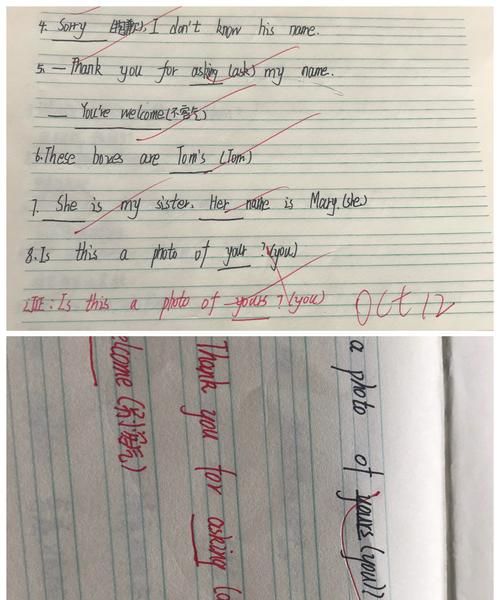 4. Sorry (抱歉), I don't know his name.
5. — Thank you for asking (ask) my name.
— You're welcome (不客气)
6. These boxes are Tom's (Tom)
7. She is my sister. Her name is Mary. (she)
8. Is this a photo of your ? (you)
订正: Is this a photo of yours ? (you)
Oct 12
a photo of yours (you)?
Thank you for asking (
elcome (不客气)